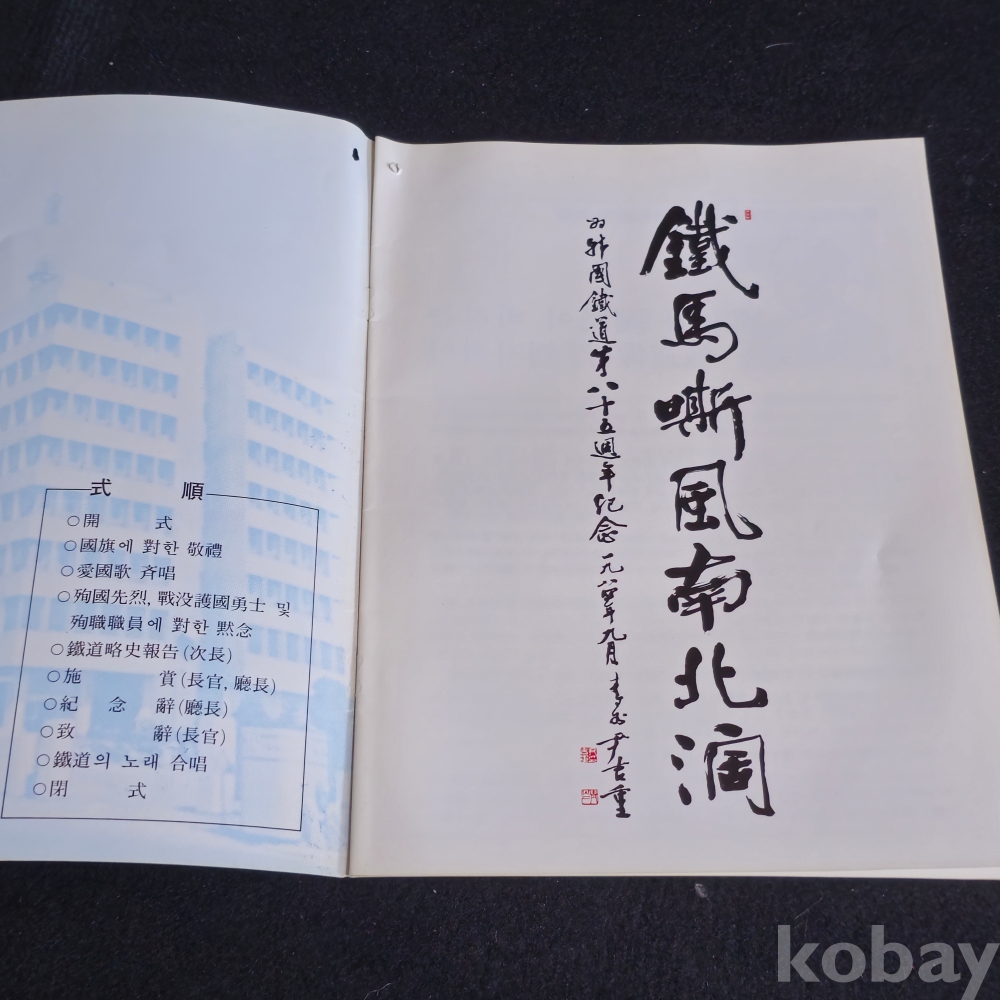 式 順
○開 式
○國旗에 對한 敬禮
○愛國歌 斉唱
○殉國先烈, 戰没護國勇士 및
殉職職員에 對한 黙念
○鐵道略史報告(次長)
○施 賞(長官, 廳長)
○紀 念 辭(廳長)
○致 辭(長官)
○鐵道의 노래 合唱
○閉 式
鐵馬嘶風南北闊
為韓國鐵道第八十五週年紀念 一九八四年九月 青谷 尹吉重
kobay